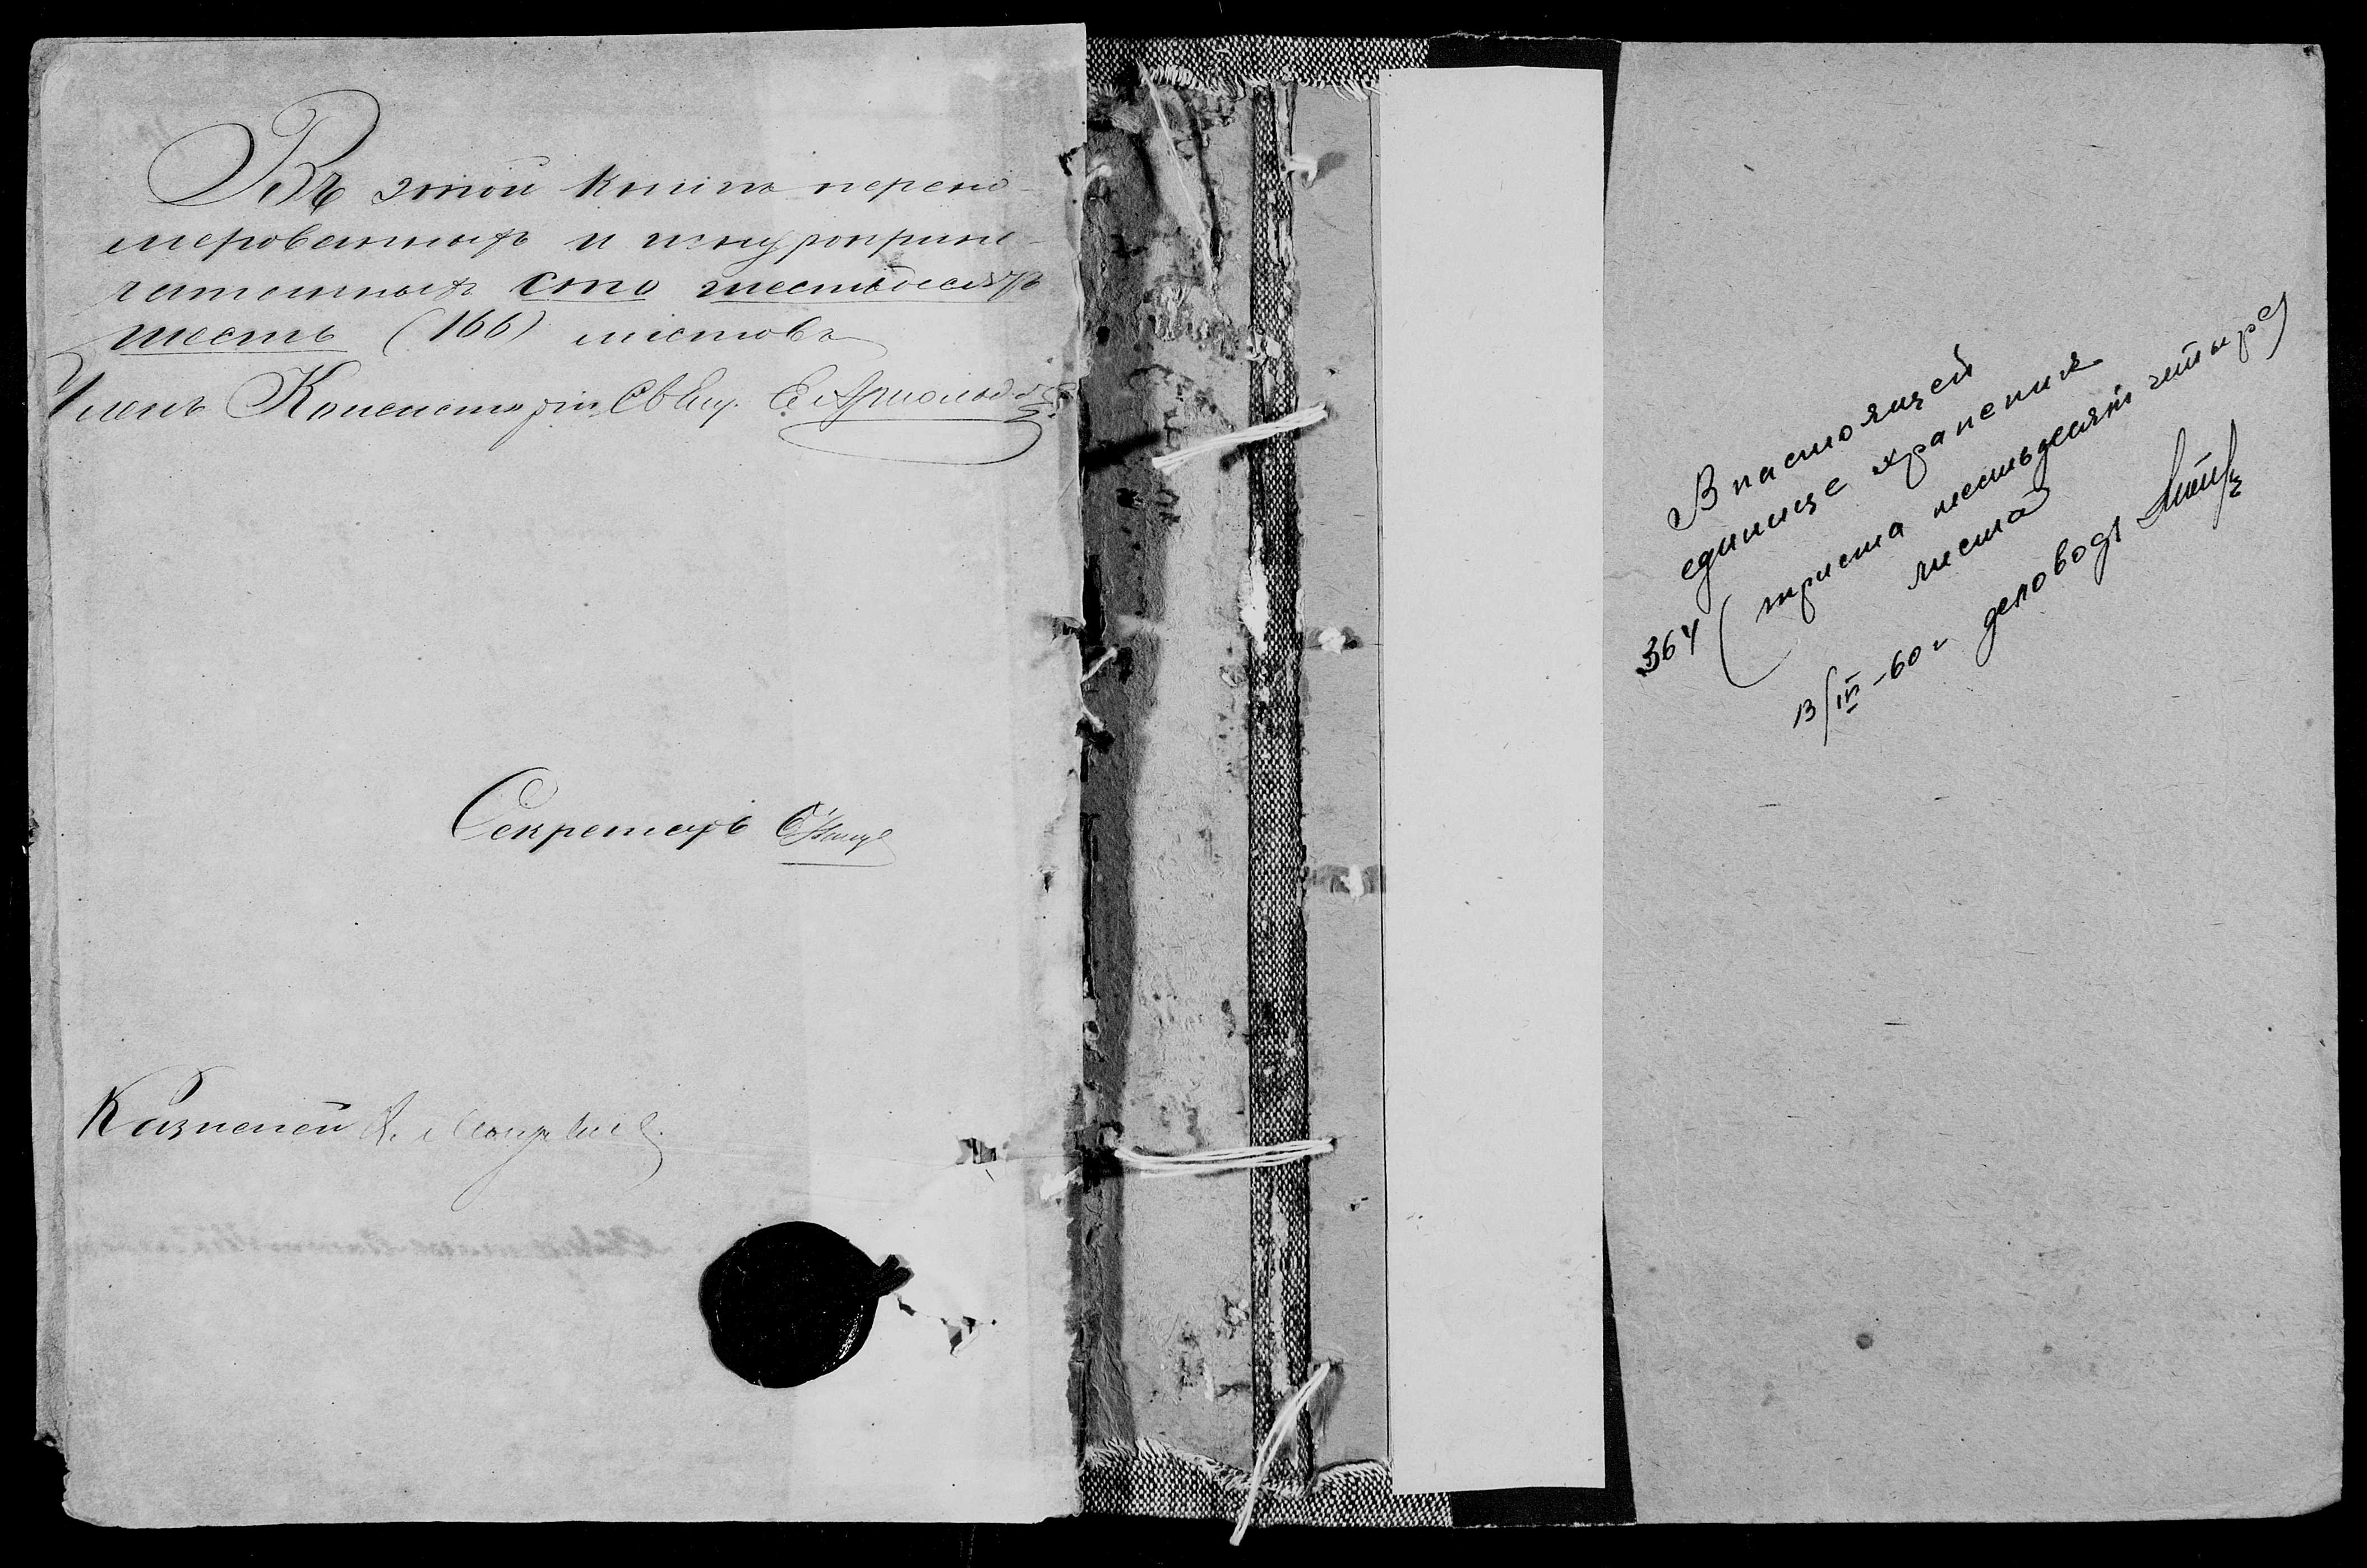 Въ этой книгѣ перено-
мерованныхъ и шнуроприпе-
чатанныхъ сто шестьдесятъ
шесть (166) листовъ
Членъ Консисторіи Свящ. Е. Арнольдовъ
Секретарь
Казначей
В настоящей
единице хранения
364 (триста шестьдесят четыре)
листа
13/IV-60 г деловод